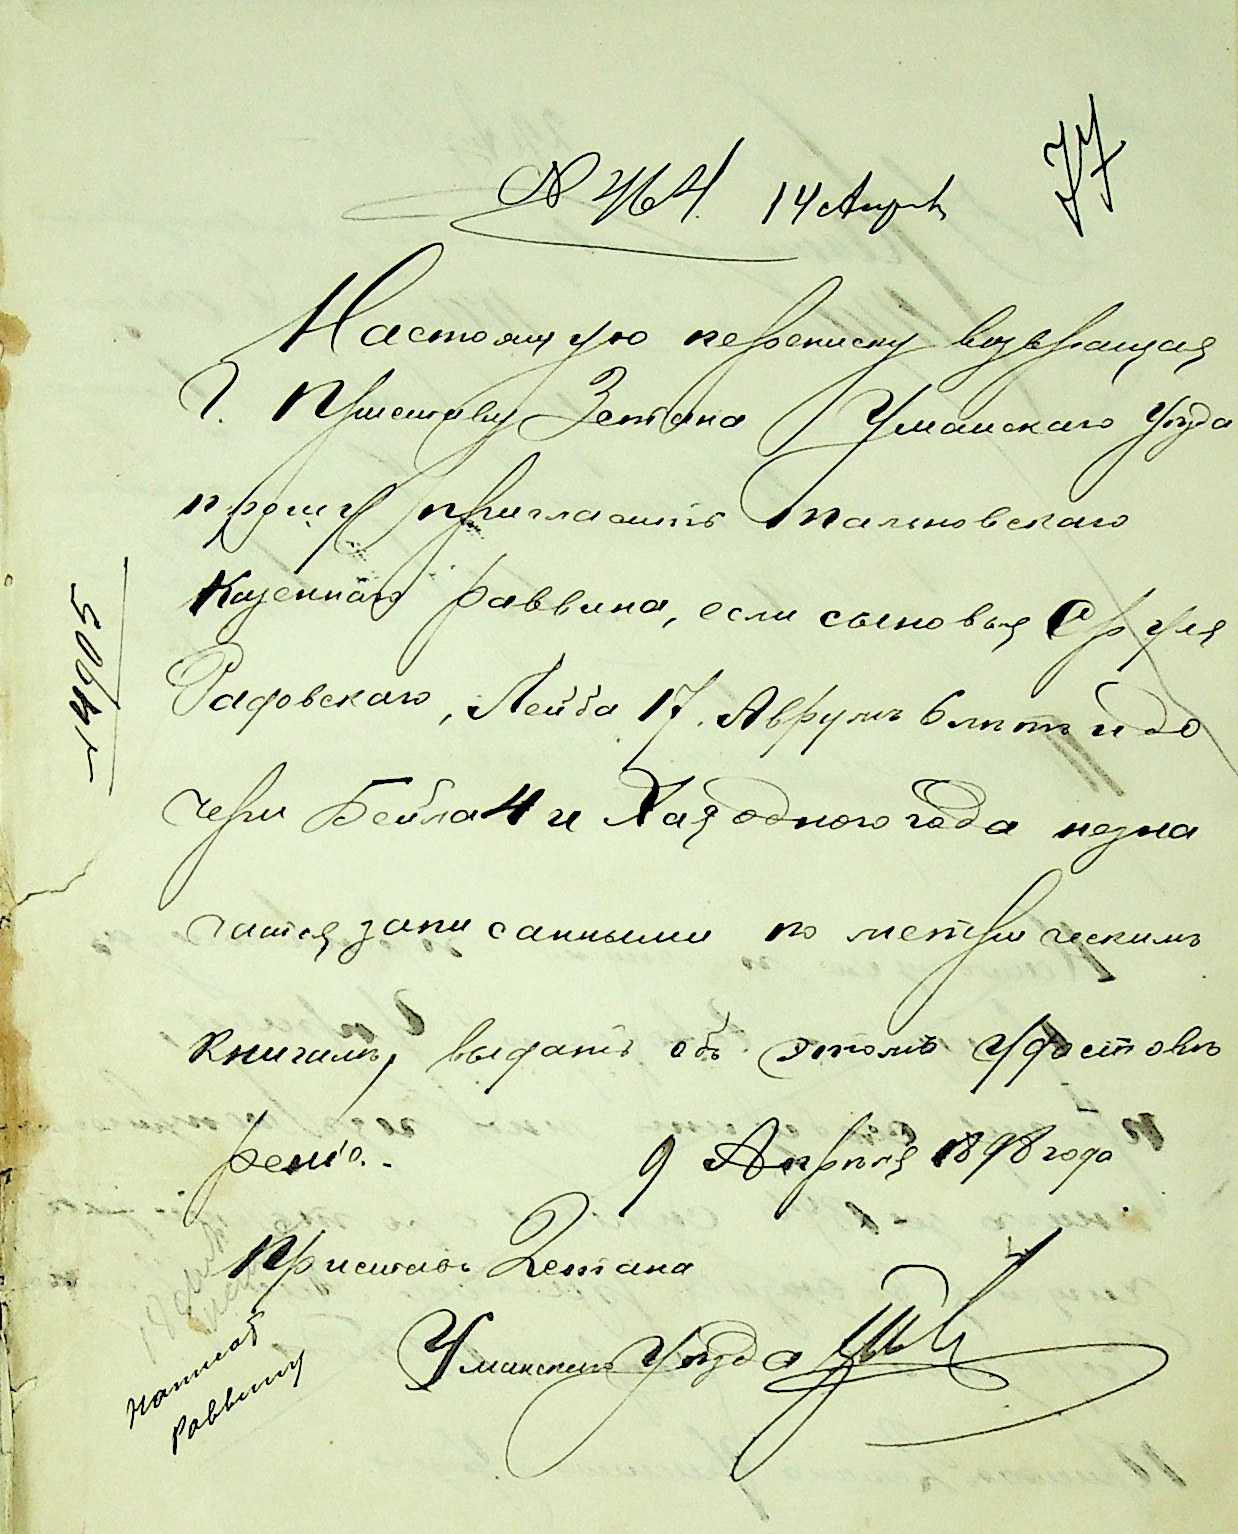 77
№ 464. 14 Апрѣ
Настоящую переписку возвращая
Г. Приставу 2 стана Уманскаго Уѣзда
прошу пригласить Тальновскаго
Казеннаго раввина, если сыновья Сруля
Радовскаго, Лейба 17. Аврумъ 6 лѣтъ и до
чери Бейла 4 и Хая одного года незна
чатся записанными по метрическимъ
книгамъ, выдать объ этомъ удостовѣ
реніе. 9 Апрѣля 1898 года
Приставъ 2 стана
Уманскаго Уѣзда
Написат
Раввину